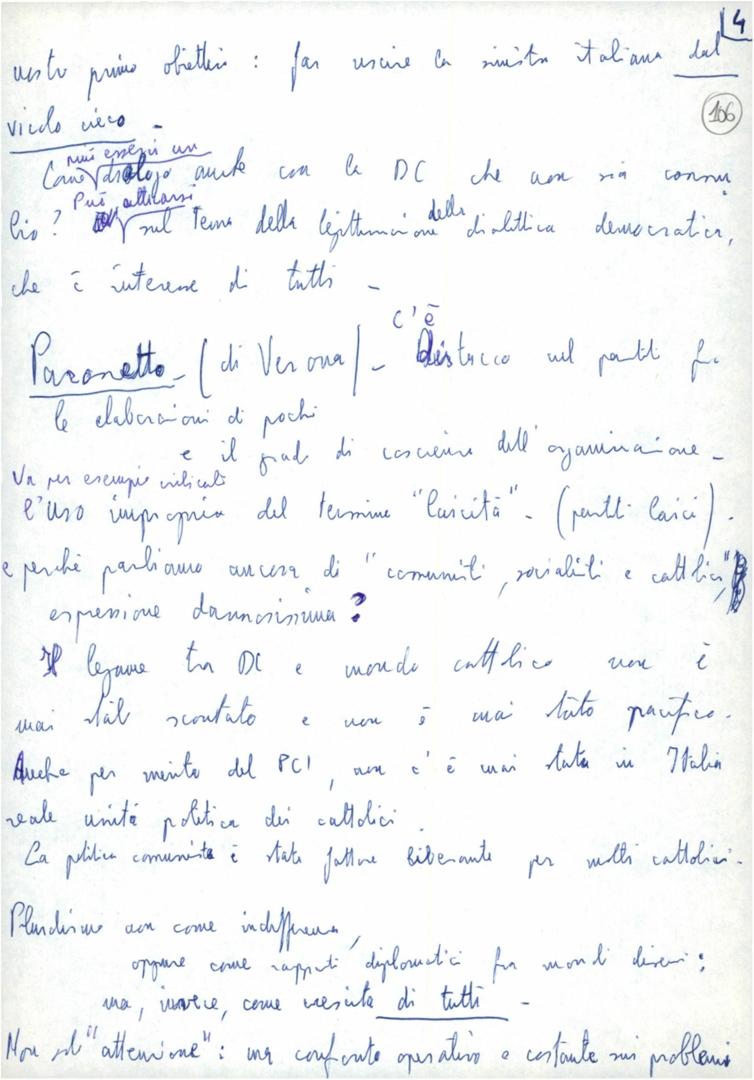 4
nostro primo obiettivo : far uscire la sinistra italiana dal
166
vicolo cieco -
può esserci un
Come dialogo anche con la DC che non sia consocia
Può attivarsi
lio? sul tema della legittimazione della dialettica democratica,
che è interesse di tutti -
c'è
Paronetto - (di Verona) - Distacco nei partiti fra
le elaborazioni di pochi
e il grado di coscienza dell'organizzazione -
Va per esempio criticato
l'uso improprio del termine "laicità" - (partiti laici).
e perché parliamo ancora di "comunisti, socialisti e cattolici",
espressione dannosissima?
Il legame tra DC e mondo cattolico non è
mai stato scontato e non è mai stato pacifico.
Anche per merito del PCI, non c'è mai stata in Italia
reale unità politica dei cattolici.
La politica comunista è stata fattore liberante per molti cattolici.
Pluralismo non come indifferenza,
oppure come rapporti diplomatici fra mondi diversi:
ma, invece, come crescita di tutti -
Non sol "attenzione": ma confronto operativo e costante sui problemi